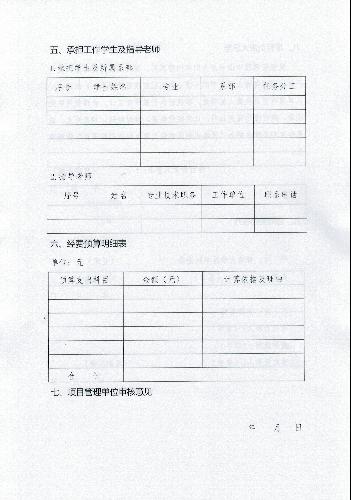 五、承担工作学生及指导老师
1.承担学生及所属系部
序号 学生姓名 专业 系部 任务分工
2.指导老师
序号 姓名 专业技术职务 工作单位 联系电话
六、经费预算明细表
单位：元
预算支出科目 金额（元） 计算依据及理由
合 计
七、项目管理单位审核意见
年 月 日